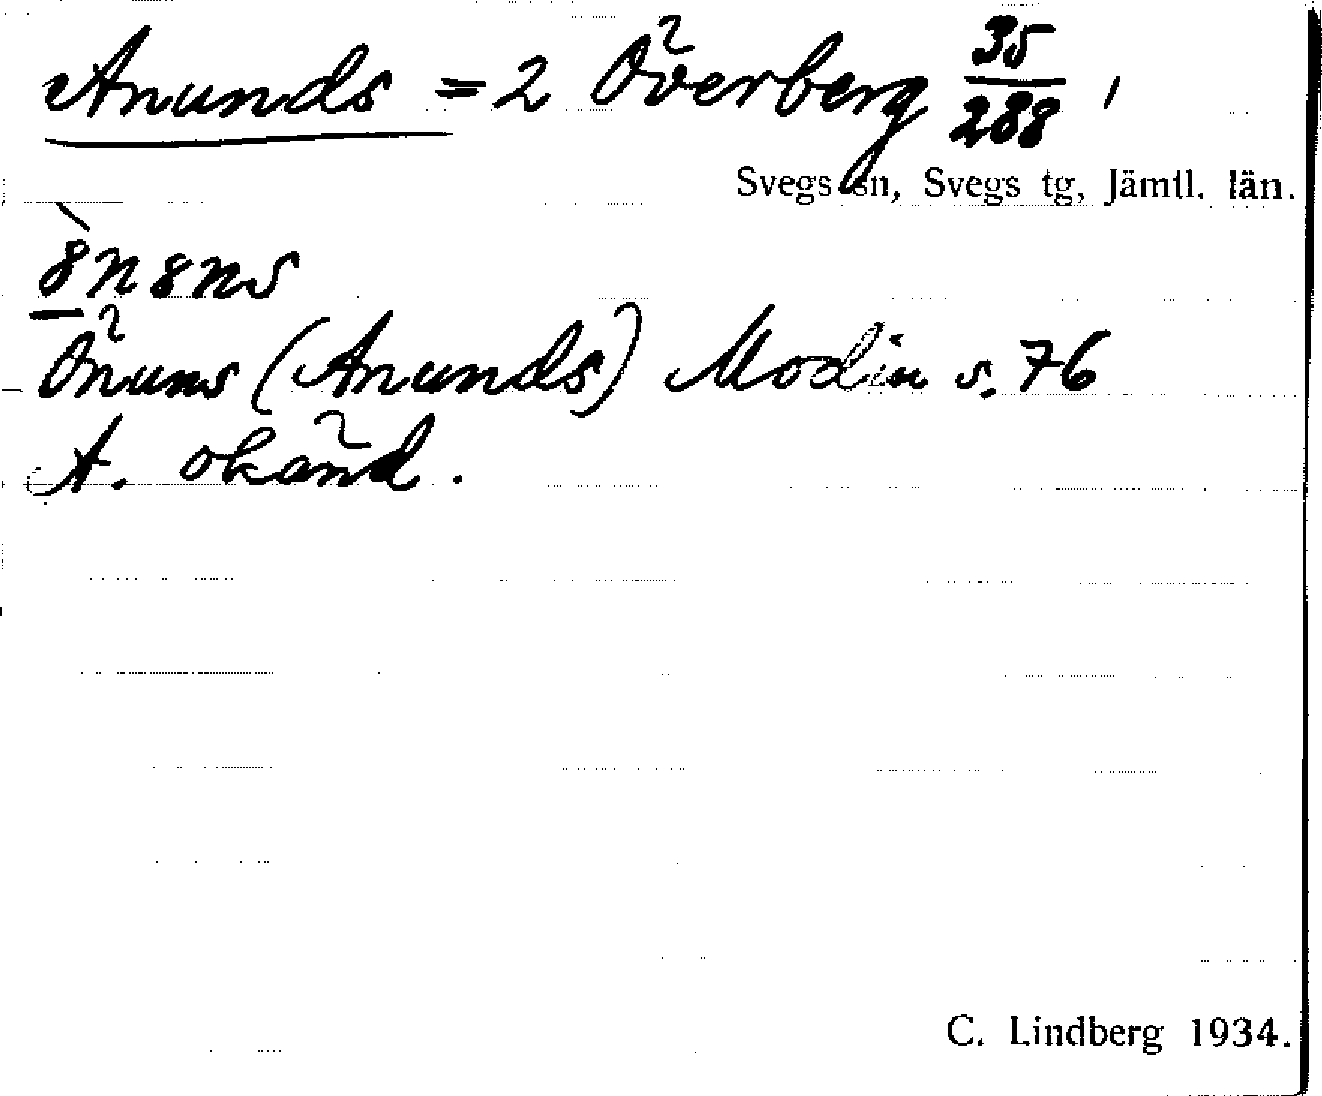 Anunds = 2 Överberg 35/288,
Svegs sn, Svegs tg, Jämtl. län.
Önuns (Anunds) Modin s. 76
A. okänd.
C. Lindberg 1934.